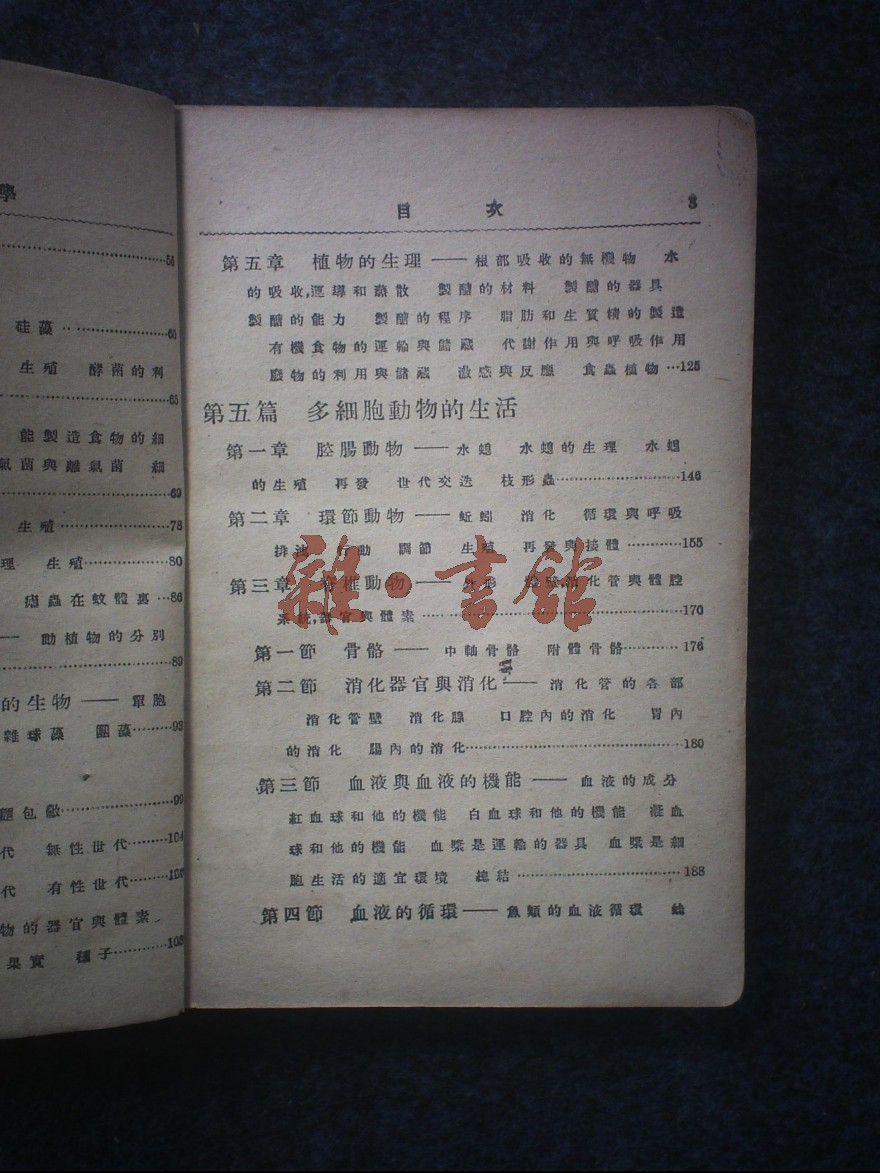 學
54
硅藻 60
生殖 酵菌的利
65
能製造食物的細
氣菌與離氣菌 細
69
生殖 78
理 生殖 80
瘧蟲在蚊體裏 86
動植物的分別
89
的生物 —— 單胞
雜球藻 團藻 93
麵包黴 99
代 無性世代 104
代 有性世代
物的器官與體素
果實 種子 108
目 次 3
第五章 植物的生理 —— 根部吸收的無機物 水
的吸收,運導和蒸散 製醣的材料 製醣的器具
製醣的能力 製醣的程序 脂肪和生質精的製造
有機食物的運輸與儲藏 代謝作用與呼吸作用
廢物的利用與儲藏 激感與反應 食蟲植物 …125
第五篇 多細胞動物的生活
第一章 腔腸動物 —— 水螅 水螅的生理 水螅
的生殖 再發 世代交迭 枝形蟲 …146
第二章 環節動物 —— 蚯蚓 消化 循環與呼吸
排泄 行動 調節 生殖 再發與接體 …155
第三章 脊椎動物 —— 外形 消化管與體腔
系統,器官與體素 …170
第一節 骨骼 —— 中軸骨骼 附體骨骼 …176
第二節 消化器官與消化 —— 消化管的各部
消化管壁 消化腺 口腔內的消化 胃內
的消化 腸內的消化 …180
第三節 血液與血液的機能 —— 血液的成分
紅血球和他的機能 白血球和他的機能 凝血
球和他的機能 血漿是運輸的器具 血漿是細
胞生活的適宜環境 總結 …188
第四節 血液的循環 —— 魚類的血液循環
雜·書館